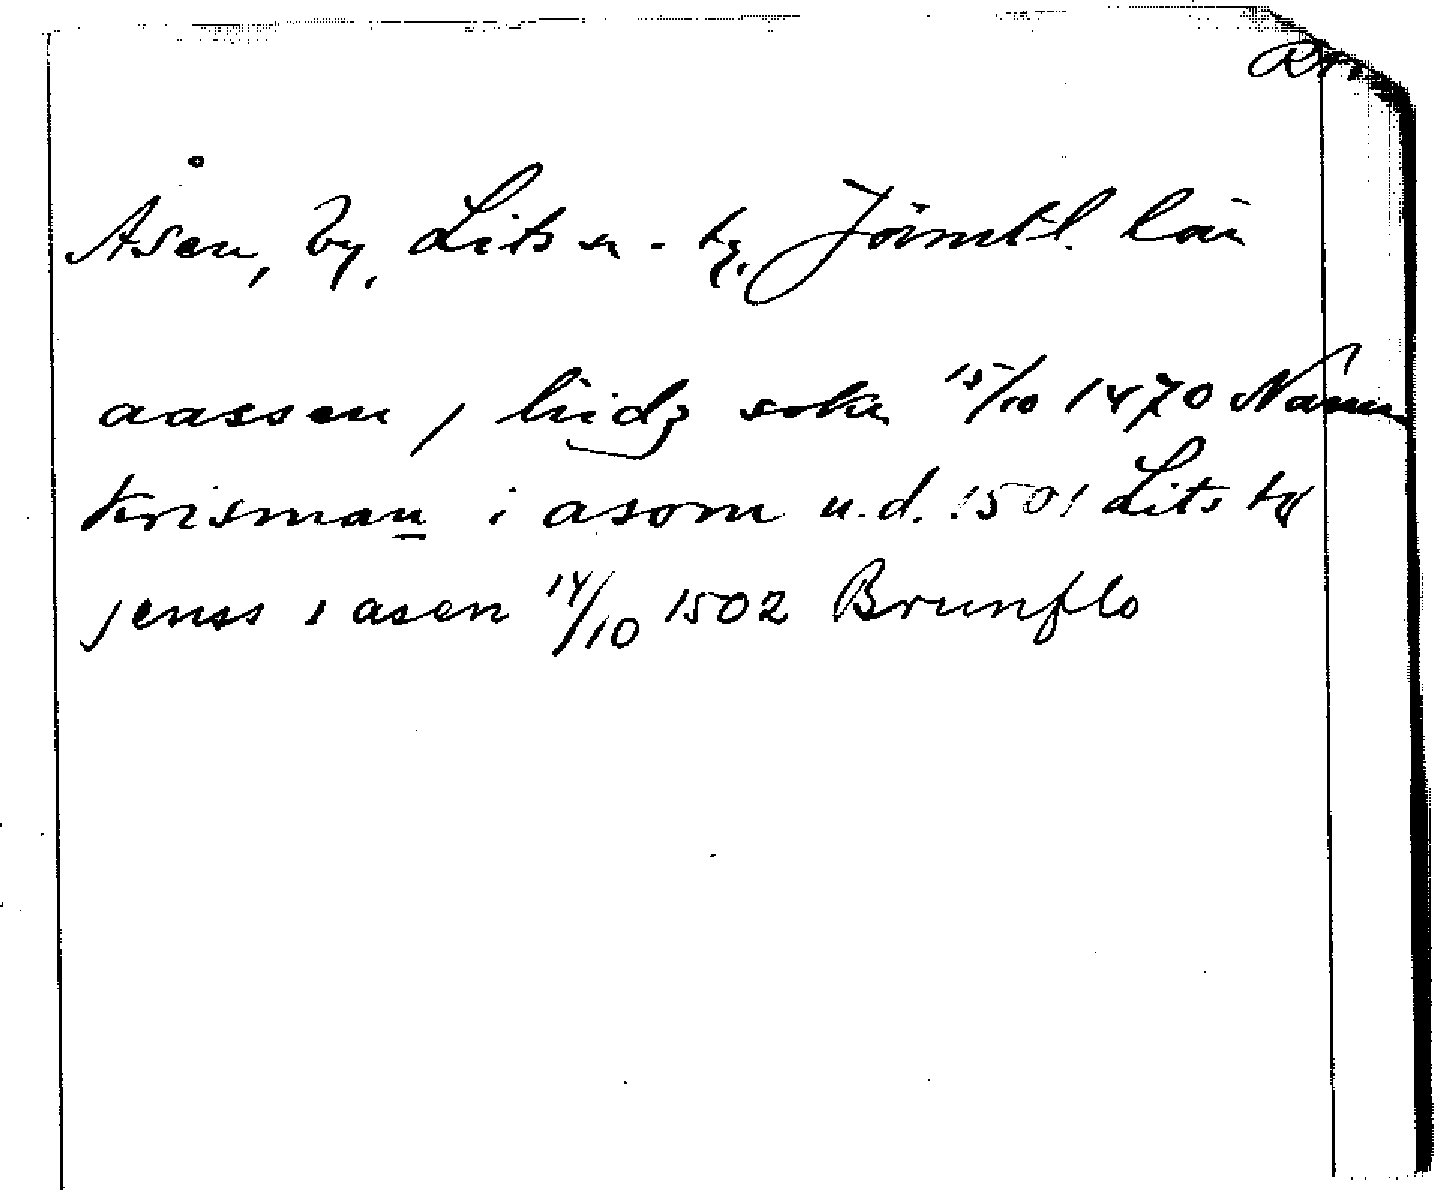 Åsen, by, Lits sn. - tg, Jämtl. län
aassen, j liidz sokn 15/10 1470
krisman i asom u.d. 1501 Lits tg
jenss i asen 14/10 1502 Brunflo